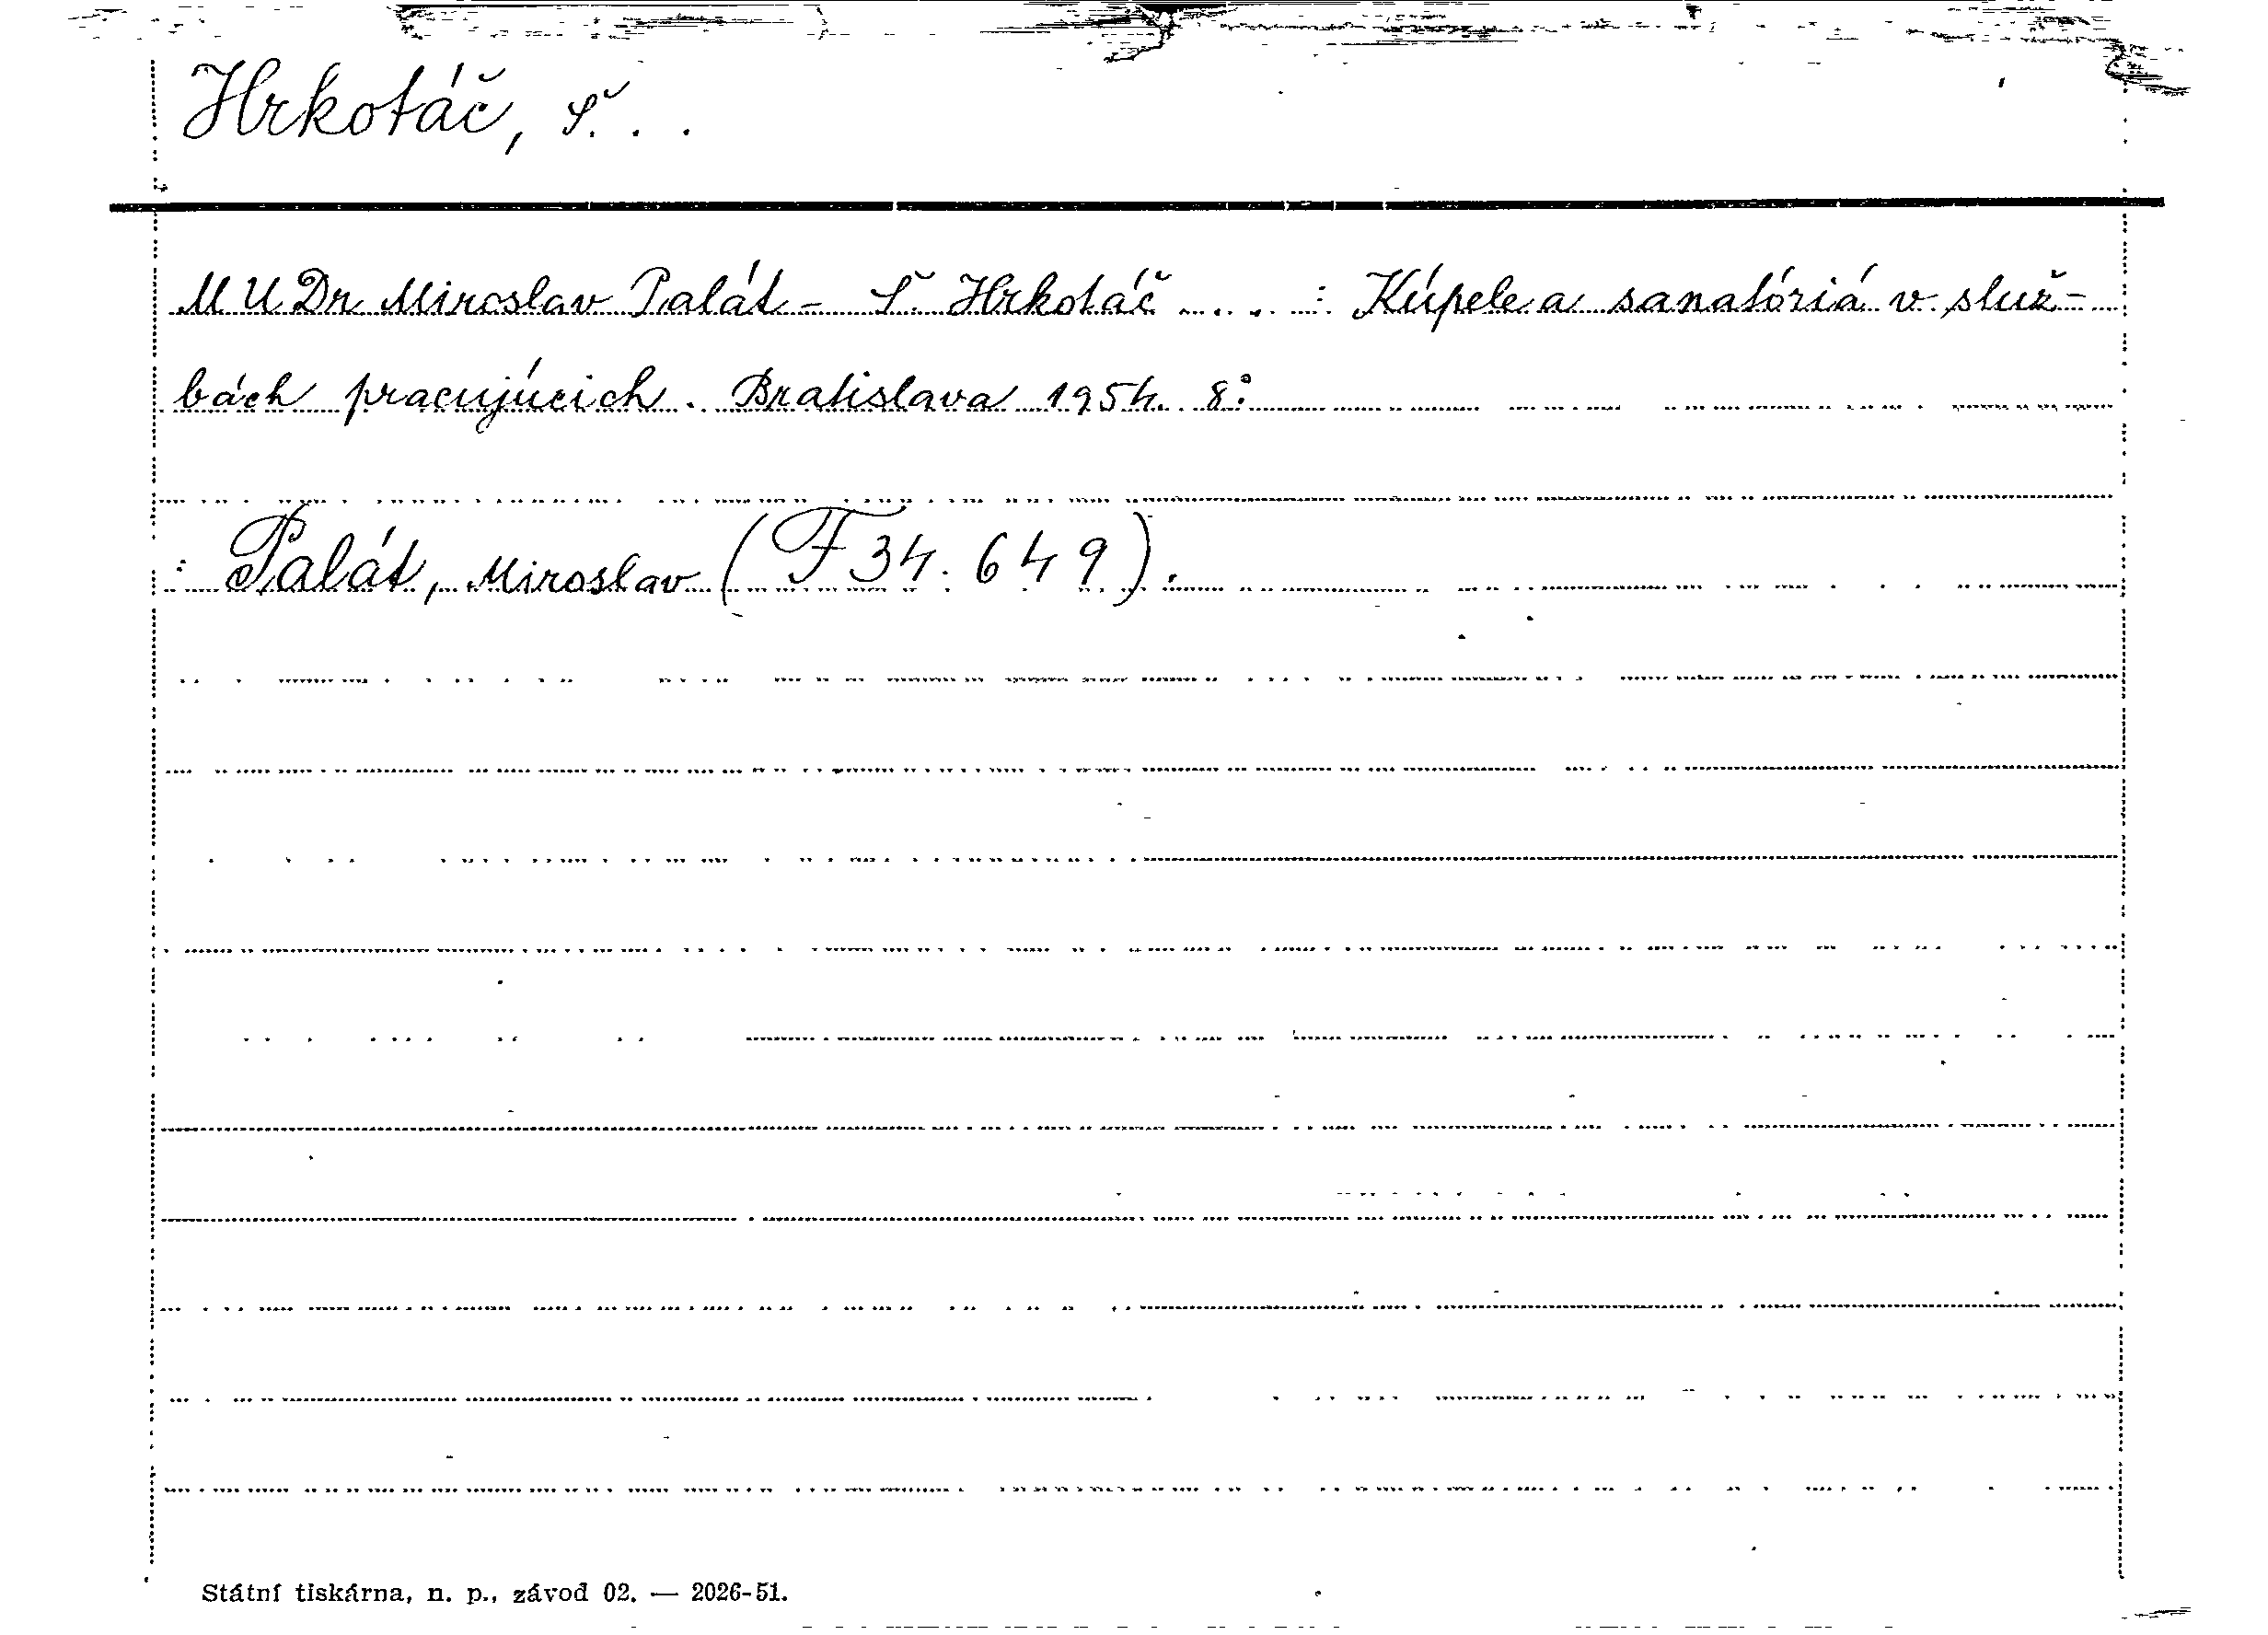 Hrkotáč, Š. . .
MUDr Miroslav Palát - Š. Hrkotáč ... : Kúpele a sanatóriá v služ-
bách pracujúcich. Bratislava 1954. 8°.
: Palát, Miroslav (F 34.649).
Státní tiskárna, n. p., závod 02. — 2026-51.